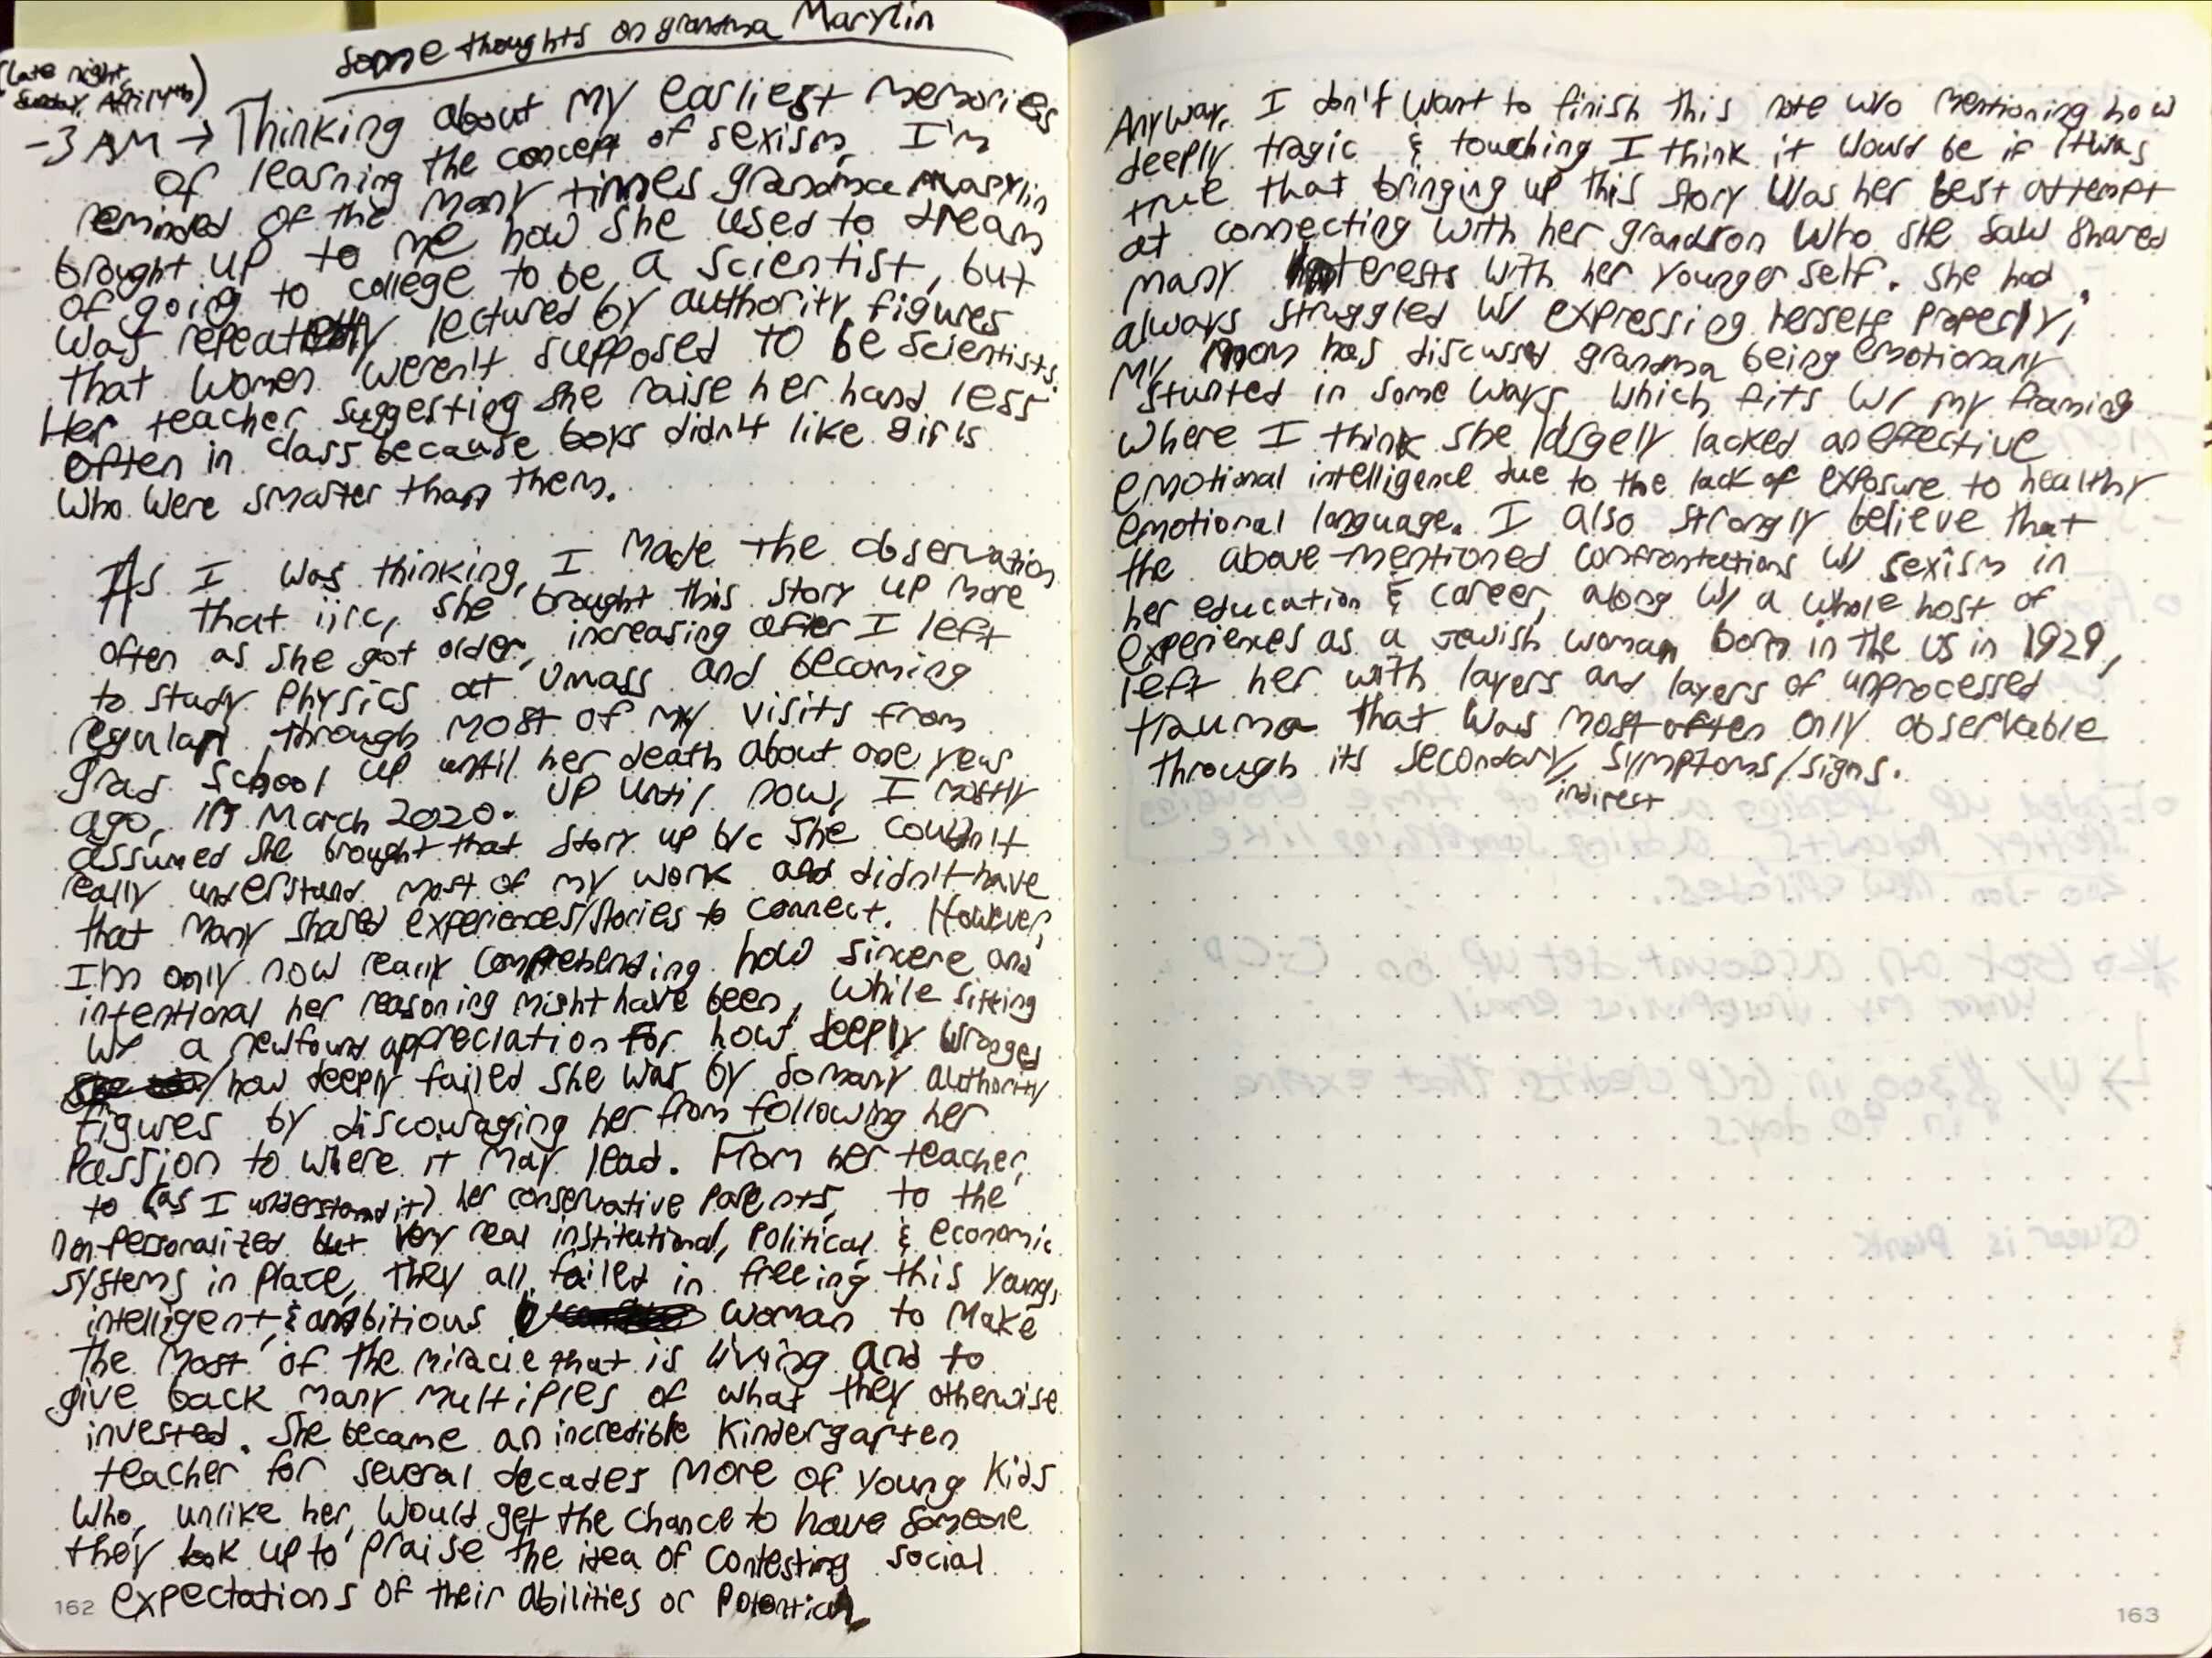 some thoughts on grandma Marylin
(late night,
Sunday, April 4th)
~3 AM → Thinking about my earliest memories
of learning the concept of sexism, I'm
reminded of the many times grandma Marylin
brought up to me how she used to dream
of going to college to be a scientist, but
was repeatedly lectured by authority figures
that women weren't supposed to be scientists.
Her teacher suggesting she raise her hand less
often in class because boys didn't like girls
who were smarter than them.
As I was thinking, I made the observation
that iirc, she brought this story up more
often as she got older, increasing after I left
to study physics at UMass and becoming
regular through most of my visits from
grad school up until her death about one year
ago, in March 2020. Up until now, I mostly
assumed she brought that story up b/c she couldn't
really understand most of my work and didn't have
that many shared experiences/stories to connect. However,
I'm only now really comprehending how sincere and
intentional her reasoning might have been, while sitting
w/ a newfound appreciation for how deeply wronged
/how deeply failed she was by so many authority
figures by discouraging her from following her
passion to where it may lead. From her teacher,
to (as I understand it) her conservative parents, to the
non-personalized but very real institutional, political, & economic
systems in place, they all failed in freeing this young,
intelligent, & ambitious woman to make
the most of the miracle that is living and to
give back many multiples of what they otherwise
invested. She became an incredible kindergarten
teacher for several decades more of young kids
who, unlike her, would get the chance to have someone
they look up to praise the idea of contesting social
expectations of their abilities or potential
162
Anyway, I don't want to finish this note w/o mentioning how
deeply tragic & touching I think it would be if it was
true that bringing up this story was her best attempt
at connecting with her grandson who she saw shared
many interests with her younger self. She had
always struggled w/ expressing herself properly;
my mom has discussed grandma being emotionally
stunted in some ways, which fits w/ my framing
where I think she largely lacked an effective
emotional intelligence due to the lack of exposure to healthy
emotional language. I also strongly believe that
the above-mentioned confrontations w/ sexism in
her education & career, along w/ a whole host of
experiences as a Jewish woman born in the US in 1929,
left her with layers and layers of unprocessed
trauma that was most often only observable
through its secondary/ symptoms/signs.
indirect
163